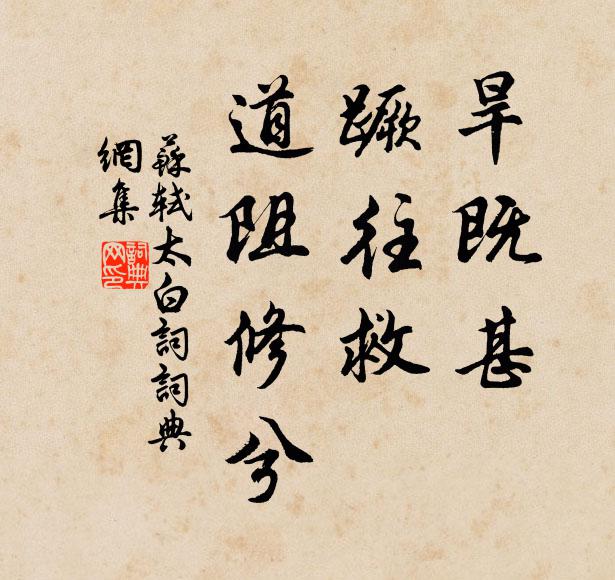 旱既甚
蹶往救
道阻修兮
蘇軾太白詞詞典
網集
詞典
网印